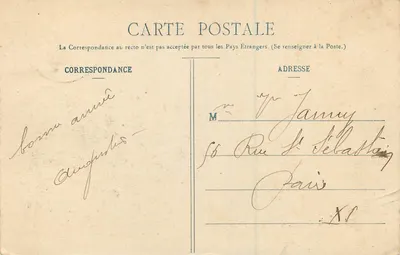 CARTE POSTALE
La Correspondance au recto n'est pas acceptée par tous les Pays Etrangers. (Se renseigner à la Poste.)
CORRESPONDANCE
bonne année
Augustine
ADRESSE
M
56 Rue St Sébastien
Paris
XI